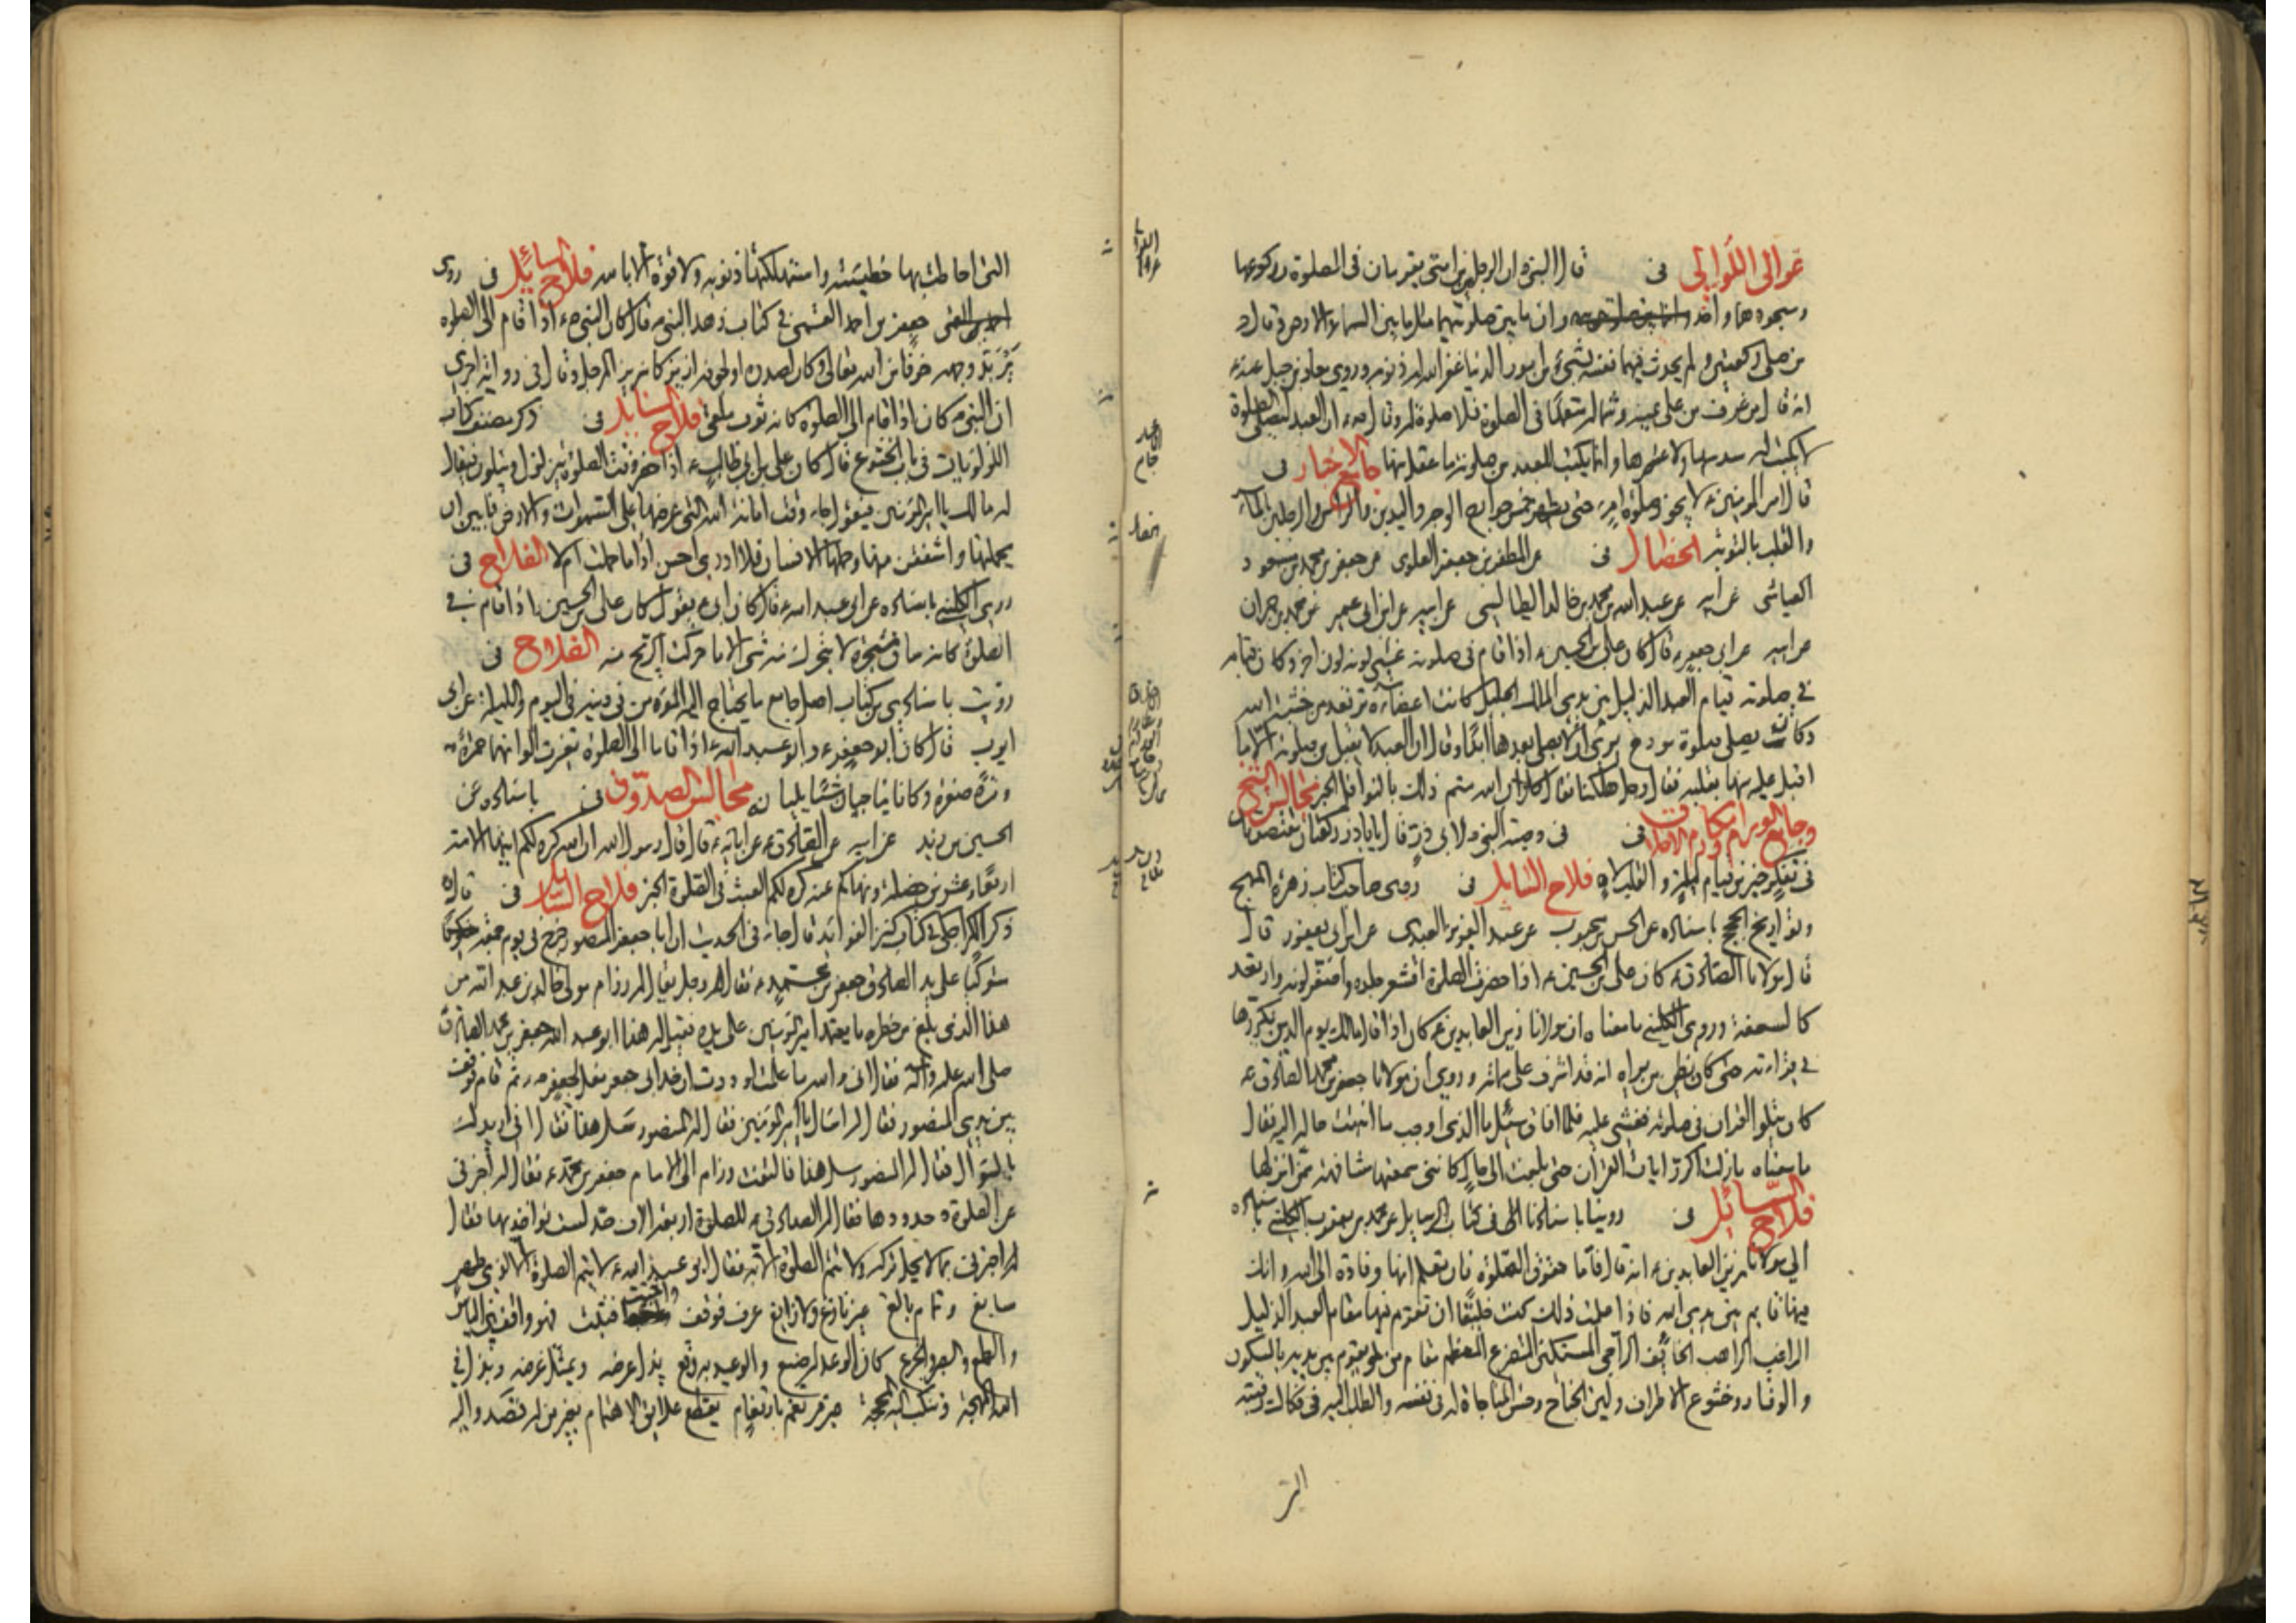 عوالي اللوالي في قال النبي ص ان الرجلين من امتي يقومان في الصلوة وركوعهما
وسجودهما واحد وان ما بين صلوتيهما مثل ما بين السماء والارض وقال ص
من صلى ركعتين ولم يحدث فيهما نفسه بشيء من امور الدنيا غفر الله له ذنوبه وروى معاذ بن جبل عنه ص
انه قال من عرف من على يمينه وشماله متعمدا في الصلوة فلا صلوة له وقال ص ان العبد ليصلي الصلوة
لا يكتب له سدسها ولا عشرها وانما يكتب للعبد من صلوته ما عقل منها جامع الاخبار في
قال امير المؤمنين ع لا يجوز صلوة امرء حتى يطهر خمس جوارح الوجه واليدين والراس والرجلين بالماء
والقلب بالتوبة الخصال في عن المظفر بن جعفر العلوي عن جعفر بن محمد بن مسعود
العياشي عن ابيه عن عبد الله بن محمد بن خالد الطيالسي عن ابيه عن ابن ابي عمير عن محمد بن حمران
عن ابيه عن ابي جعفر ع قال كان علي بن الحسين ع اذا قام في صلوته غشي لونه لون اخر وكان قيامه
في صلوته قيام العبد الذليل بين يدي الملك الجليل كانت اعضاؤه ترتعد من خشية الله
وكان يصلي صلوة مودع يرى انه لا يصلي بعدها ابدا وقال ان العبد لا يقبل من صلوته الا ما
اقبل عليه منها بقلبه فقال رجل هلكنا فقال كلا ان الله متمم ذلك بالنوافل الخبر مجالس الشيخ
وجامع الورام ومكارم الاخلاق في في وصية النبي ص لابي ذر قال يا باذر ركعتان مقتصدتان
في تفكر خير من قيام ليلة والقلب لاه فلاح السائل في روى صاحب كتاب زهرة المهج
وتواريخ الحجج باسناده عن الحسن بن محبوب عن عبد العزيز العبدي عن ابن ابي يعفور قال
قال مولانا الصادق ع كان علي بن الحسين ع اذا حضرت الصلوة اقشعر جلده واصفر لونه وارتعد
كالسعفة وروى الكليني ما معناه ان مولانا زين العابدين ع كان اذا قال مالك يوم الدين يكررها
في قراءته حتى كان يظن من يراه انه قد اشرف على مماته وروي ان مولانا جعفر بن محمد الصادق ع
كان يتلو القران في صلوته فغشي عليه فلما افاق سئل ما الذي اوجب ما انتهت حاله اليه فقال
ما معناه ما زلت اكرر ايات القران حتى بلغت الى حال كانني سمعتها مشافهة ممن انزلها
فلاح السائل في روينا باسنادنا الى في كتاب الرسايل عن محمد بن يعقوب الكليني باسناده
الى مولانا زين العابدين ع انه قال فاما حقوق الصلوة فان تعلم انها وفادة الى الله وانك
فيها قايم بين يدي الله فاذا علمت ذلك كنت خليقا ان تقوم فيها مقام العبد الذليل
الراغب الراهب الخائف الراجي المستكين المتضرع المعظم مقام من يقوم بين يديه بالسكون
والوقار وخشوع الاطراف ولين الجناح وحسن المناجاة له في نفسه والطلب اليه في فكاك رقبته
التي
التي احاطت بها خطيئته واستهلكتها ذنوبه ولا قوة الا بالله فلاح السائل في روى
جعفر بن احمد القمي في كتاب زهد النبي ص قال كان النبي ص اذا قام الى الصلوة
يربد وجهه خوفا من الله تعالى وكان لصدره او لجوفه ازيز كازيز المرجل وقال في رواية اخرى
ان النبي ص كان اذا قام الى الصلوة كانه ثوب ملقى فلاح السايل في ذكر مصنف كتاب
اللؤلؤيات في باب الخشوع قال كان علي بن ابي طالب ع اذا حضر وقت الصلوة يتزلزل ويتلون فيقال
له ما لك يا امير المؤمنين فيقول جاء وقت امانة الله التي عرضها على السموات والارض فابين ان
يحملنها واشفقن منها وحملها الانسان فلا ادري احسن اداء ما حملت ام لا الفلاح في
روى الكليني باسناده عن ابي عبد الله ع قال كان ابي ع يقول كان علي بن الحسين ع اذا قام في
الصلوة كانه ساق شجرة لا يتحرك منه شيء الا ما حركت الريح منه الفلاح في
رويت باسنادي من كتاب اصل جامع ما يحتاج اليه المؤمن في دينه في اليوم والليلة عن ابي
ايوب قال كان ابو جعفر ع وابو عبد الله ع اذا قاما الى الصلوة تغيرت الوانهما حمرة
ومرة صفرة وكانا يناجيان شيئا يريانه مجالس الصدوق في باسناده عن
الحسين بن زيد عن ابيه عن الصادق ع عن ابائه ع قال قال رسول الله ان الله كره لكم ايتها الامة
اربعا وعشرين خصلة ونهاكم عنه كره لكم العبث في الصلوة الخبر فلاح السائل في قال
ذكر الكراجكي في كتاب كنز الفوائد قال جاء في الحديث ان ابا جعفر المنصور خرج في يوم جمعة
متوكئا على يد الصادق جعفر بن محمد ع فقال رجل يقال له رزام مولى خالد بن عبد الله من
هذا الذي بلغ من خطره ما يعتمد امير المؤمنين على يده فقيل له هذا ابو عبد الله جعفر بن محمد الصادق
صلى الله عليه واله فقال اني والله ما علمت لوددت ان خد ابي جعفر نعل لجعفر ثم قام فوقف
بين يدي المنصور فقال له اسال يا امير المؤمنين فقال له المنصور سل هذا فقال اني اريدك
بالسؤال فقال له المنصور سل هذا فالتفت رزام الى الامام جعفر بن محمد ع فقال له اخبرني
عن الصلوة وحدودها فقال له الصادق ع للصلوة اربعة الاف حد لست تؤاخذ بها فقال
اخبرني بما لا يحل تركه ولا تتم الصلوة الا به فقال ابو عبد الله ع لا يتم الصلوة الا لذي طهر
سابغ وتمام بالغ غير نازغ ولا زايغ عرف فوقف واخبت فثبت فهو واقف بين الياس
والطمع والصبر والجزع كان الوعد له صنع والوعيد به وقع بذل عرضه وتمثل غرضه وبذل في
الله المهجة وتنكب اليه المحجة غير مرتغم بارتغام يقطع علايق الاهتمام بعين من له قصد واليه